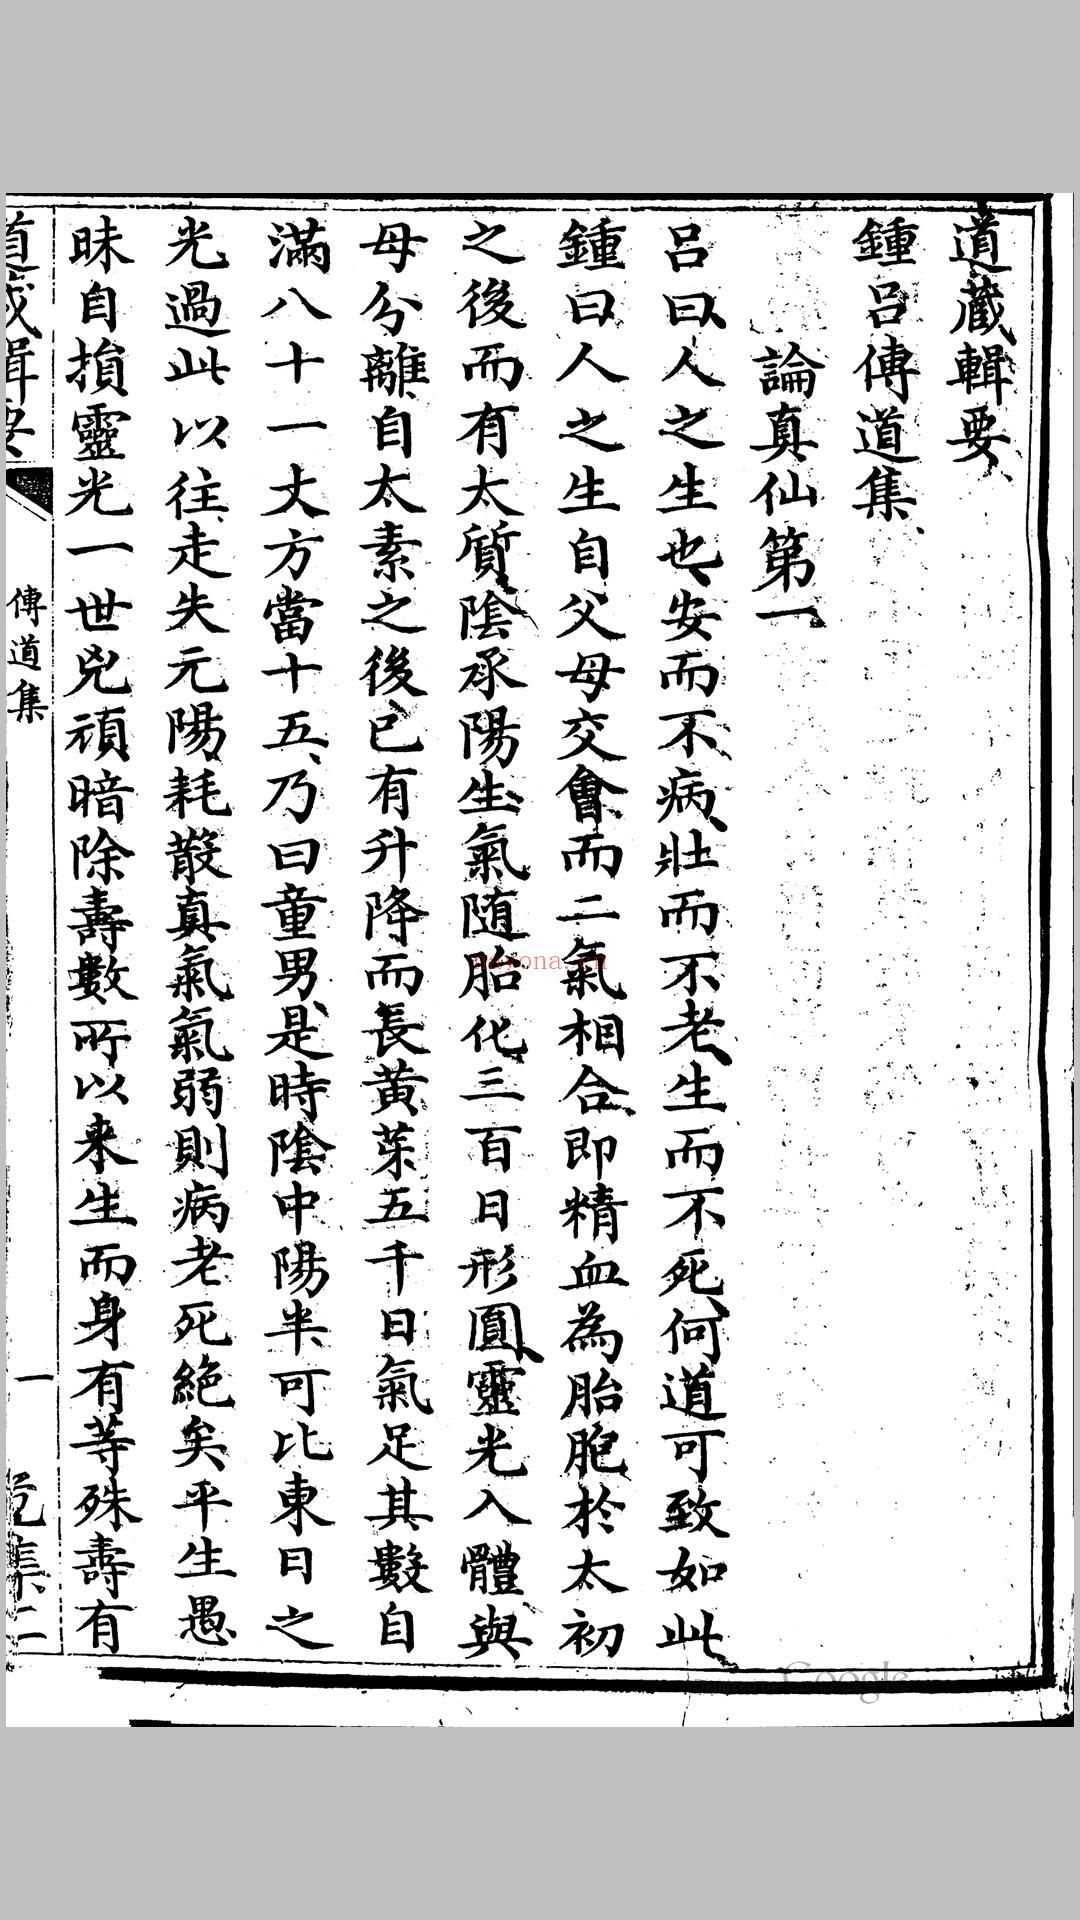 道藏輯要
鍾呂傳道集
論真仙第一
呂曰人之生也安而不病壯而不老生而不死何道可致如此
鍾曰人之生自父母交會而二氣相合即精血為胎胞於太初
之後而有太質陰承陽生氣随胎化三百日形圓靈光入體與
母分離自太素之後已有升降而長黃芽五千日氣足其數自
滿八十一丈方當十五乃曰童男是時陰中陽半可比東日之
光過此以往走失元陽耗散真氣氣弱則病老死絕矣平生愚
昧自損靈光一世兇頑暗除壽數所以来生而身有等殊壽有
道藏輯要
傳道集
一
集二
nayona.cn
Google